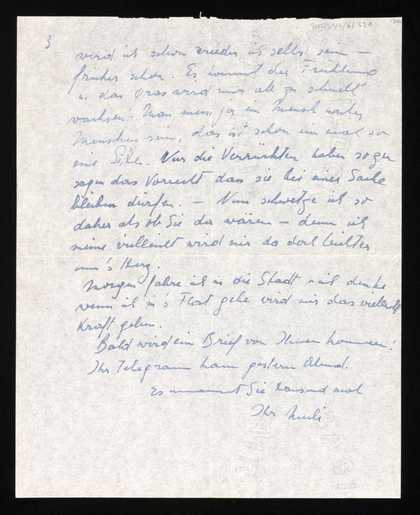 3
wird ich schon wieder ich selbst sein –
früher schon. Es kommt der Frühling
u. das Gras wird mir all zu schnell
wachsen. Man muss ja ein Mensch unter
Menschen sein, das ist schon einmal so
eine Sitte. Nur die Verrückten haben sozu
sagen das Vorrecht das sie bei einer Sache
bleiben dürfen. – Nun schwetze ich so
daher als ob Sie da wären – denn ich
meine vielleicht wird mir da doch leichter
um's Herz.
Morgen fahre ich in die Stadt – ich denke
wenn ich in's geh wird mir das vielleicht
Kraft geben.
Bald wird ein Brief von Ihnen kommen!
Ihr Telegram kam gestern Abend.
Es umarmt Sie tausend mal
Ihr